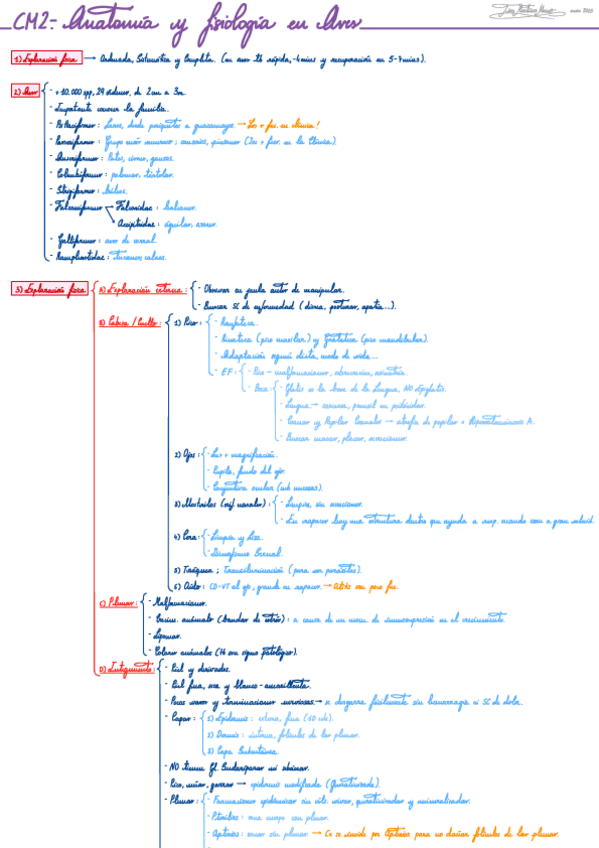 CM2: Anatomía y fisiología en Aves
enero 2025
1) Exploración física → Ordenada, Sistemática y Completa. (en aves tb rápida, -4mins y recuperación en 5-7mins).
2) Aves
- + 10.000 spp, 29 órdenes, de 2cm a 3m.
- Importante conocer la familia.
- Psittaciformes: Loros, desde periquitos a guacamayos → Los + frec. en clínica!
- Passeriformes: Grupo más numeroso; canarios, (2os + frec. en la Clínica).
- Anseriformes: Patos, cisnes, gansos.
- Columbiformes: palomas, tórtolas.
- Strigiformes: búhos.
- Falconiformes
Falconidae: halcones.
Accipitridae: águilas, azores.
- Galliformes: aves de corral.
- Ramphastidae: tucanes
3) Exploración física
A) Exploración externa:
- Observar en jaula antes de manipular.
- Buscar SC de enfermedad (disnea, posturas, apatía...).
B) Cabeza / Cuello:
1) Pico:
- Ranfoteca.
- Rinoteca (pico maxilar) y Gnatoteca (pico mandibular).
- Adaptación según dieta, modo de vida...
- EF:
- Pico - malformaciones, simetría.
- Boca:
- Glotis en la base de la Lengua, NO epiglotis.
- Lengua →
- Coanas y Papilas Coanales → atrofia de papilas = Hipovitaminosis A.
- Buscar masas, placas, secreciones.
2) Ojos:
- Luz + magnificación.
- Pupila, fondo del ojo.
- Conjuntiva ocular
3) Narinas
- Limpias, sin secreciones.
- En rapaces hay una estructura dentro que ayuda a resp. cuando caen a gran velocid.
4) Cera:
- Limpia y Lisa.
- Dimorfismo Sexual.
5) Tráquea; Transiluminación (para ver parásitos).
6) Oído: CD-VT al ojo, grande en rapaces →
C) Plumas:
- Malformaciones.
- Crecim. anómalo (bandas de estrés): a causa de un momento de inmunosupresión en el crecimiento.
- Colores anómalos
D) Integumento:
- Piel y derivados.
- Piel fina, seca y blanco-amarillenta.
- Pocos vasos y terminaciones nerviosas → se desgarra fácilmente sin hemorragia ni SC de dolor.
- Capas:
1) Epidermis: externa, fina
2) Dermis: interna, folículos de las plumas.
3) Capa Subcutánea.
- NO tienen gl. Sudoríparas ni sebáceas.
- Pico, uñas, garras → epidermis modificada (Queratinizada).
- Plumas:
- Formaciones epidérmicas sin céls. vivas, queratinizadas y mineralizadas.
- Pterilas: zonas cuerpo con plumas.
- Apterios: zonas sin plumas → Cx se incide por Apterios para no dañar folículos de las plumas.